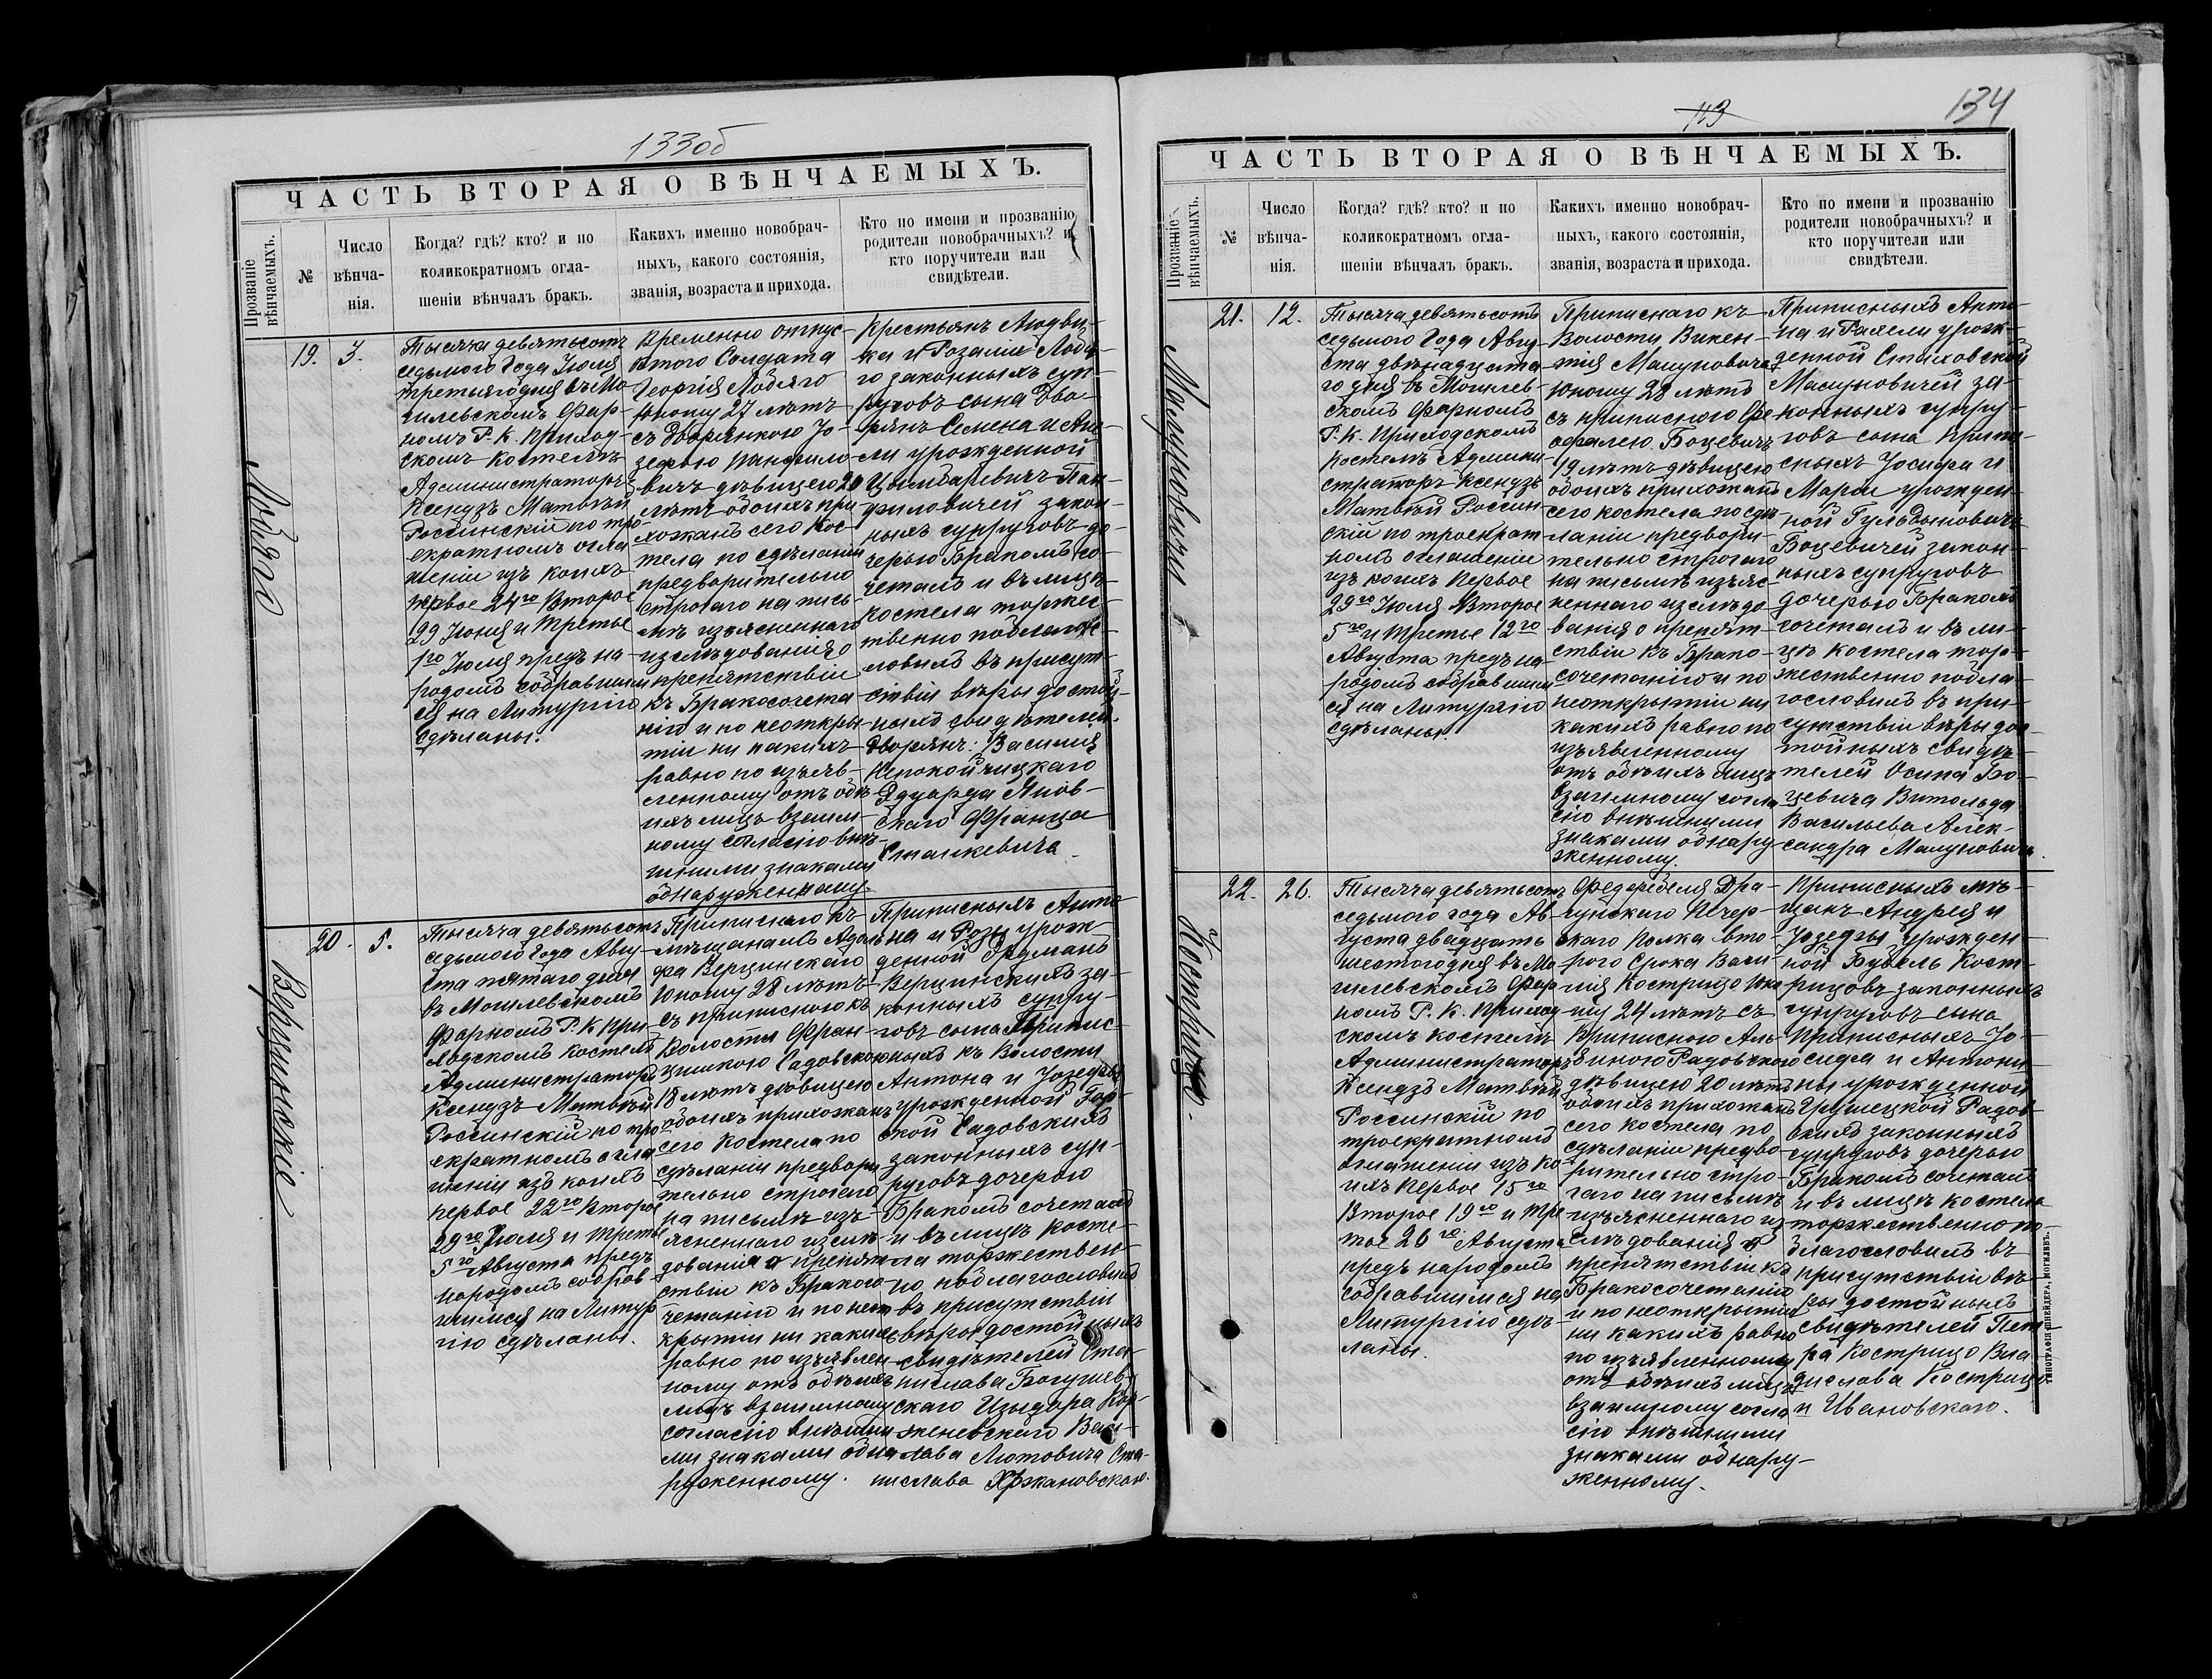 133об
ЧАСТЬ ВТОРАЯ О ВѢНЧАЕМЫХЪ.
Прозваніе вѣнчаемыхъ.
№
Число вѣнча-
нія.
Когда? гдѣ? кто? и по
коликократномъ огла-
шеніи вѣнчалъ бракъ.
Какихъ именно новобрач-
ныхъ, какого состоянія,
званія, возраста и прихода.
Кто по имени и прозванію
родители новобрачныхъ? и
кто поручители или
свидѣтели.
19.
3.
Тысяча девятьсотъ
седьмого Года Іюля
третьяго дня въ Мо
гилевскомъ Фар-
номъ Р. К. Приход-
скомъ Костелѣ
Администраторъ
Ксендзъ Матвѣй
Россинскій по тро-
екратномъ огла
шеніи изъ коихъ
первое 24го Второе
29 Іюня и третье
1го Іюля предъ на-
родомъ собравшим
ся на Литургію
сдѣланы.
Временно отпус-
кного Солдата
Георгія Лобяго
Юношу 27 лѣтъ
съ Дворянкою Іо-
зефою Панфило-
вичъ дѣвицею 20
лѣтъ обоихъ при
хожанъ сего Кос-
тела по сдѣланіи
предварительно
строгаго на пись
мѣ изъясненнаго
изслѣдованія о
препятствіи
къ Бракосочета
нію и по неоткры-
тіи ни какихъ
равно по изъяв-
ленному отъ обѣ-
ихъ лицъ взаим-
ному согласію внѣ-
шними знаками
обнаруженному.
Крестьянъ Людви-
ка и Розаліи Лобя-
го законныхъ суп-
руговъ сына Дво-
рянъ Семена и Ане-
ли урожденной
Цимбаревичъ Пан-
филовичей закон-
ныхъ супруговъ до-
черью Бракомъ со-
четалъ и въ лицѣ
костела торжес-
твенно поблагос-
ловилъ въ присут-
ствіи вѣры достой-
ныхъ свидѣтелей.
Дворянъ: Василія
Непокойчицкаго
Эдуарда Янов-
скаго Франца
Станкевича.
20.
5.
Вержинскіе
Тысяча девятьсотъ
седьмого Года Авгу-
ста пятаго дня
въ Могилевскомъ
Фарномъ Р. К При
ходскомъ Костелѣ
Администраторъ
Ксендзъ Матвѣй
Россинскій по тро
екратномъ огла
шеніи изъ коихъ
первое 22го Второе
29го Іюля и третье
5го Августа предъ
народомъ собрав-
шимся на Литур
гію сдѣланы.
Приписнаго къ
мѣщанамъ Адоль
фа Верцинскаго
Юношу 28 лѣтъ
съ приписною къ
Волости Фран-
цишкою Садовскою
18 лѣтъ дѣвицею
обоихъ прихожанъ
сего Костела по
сдѣланіи предвари
тельно строгаго
на письмѣ изъ-
ясненнаго изслѣ-
дованія о препят-
ствіи къ Бракосо-
четанію и по неот-
крытіи ни какихъ
равно по изъявлен
ному отъ обѣихъ
лицъ взаимному
согласію внѣшни
ми знаками обна
руженному.
Приписныхъ Анто-
на и Розы урож-
денной Эрдманъ
Верцинскихъ за-
конныхъ супру-
говъ сына Припис-
ныхъ къ Волости
Антона и Іозефы
урожденной Гор-
ской Садовскихъ
законныхъ суп-
руговъ дочерью
Бракомъ сочеталъ
и въ лицѣ косте-
ла торжествен-
но поблагословилъ
въ присутствіи
вѣры достойныхъ
свидѣтелей Ста-
нислава Богушев-
скаго Изыдора Кор-
женевскаго Вац-
лава Лютовича Ста-
нислава Хржановскаго.
113
134
ЧАСТЬ ВТОРАЯ О ВѢНЧАЕМЫХЪ.
Прозваніе вѣнчаемыхъ.
№
Число
вѣнча-
нія.
Когда? гдѣ? кто? и по
коликократномъ огла-
шеніи вѣнчалъ бракъ.
Какихъ именно новобрач-
ныхъ, какого состоянія,
званія, возраста и прихода.
Кто по имени и прозванію
родители новобрачныхъ? и
кто поручители или
свидѣтели.
21.
12.
Тысяча девятьсотъ
седьмого Года Авгу
ста двѣнадцата
го дня въ Могилев-
скомъ Фарномъ
Р. К. Приходскомъ
Костелѣ Админи-
страторъ Ксендзъ
Матвѣй Россин-
скій по троекрат-
номъ оглашеніи
изъ коихъ Первое
29го Іюля Второе
5го и третье 12го
Августа предъ на-
родомъ собравшим
ся на Литургію
сдѣланы.
Приписнаго къ
Волости Викен-
тія Мацуновича
Юношу 28 лѣтъ
съ приписною Оф-
фалею Боцевичъ
19 лѣтъ дѣвицею
обоихъ прихожанъ
сего костела по сдѣ-
ланіи предвари-
тельно строгаго
на письмѣ изъяс-
неннаго изслѣдо-
ванія о препят-
ствіи къ Брако-
сочетанію и по
неоткрытіи ни
какихъ равно по
изъявленному
отъ обѣихъ лицъ
взаимному согла
сію внѣшними
знаками обнару-
женному.
Приписныхъ Анто-
на и Рахели урож-
денной Стаховской
Мацуновичей за-
конныхъ супру-
говъ сына припи-
сныхъ Іосифа и
Маріи урожден-
ной Гульдыновичъ
Боцевичей закон-
ныхъ супруговъ
дочерью Бракомъ
сочеталъ и въ ли-
цѣ костела тор-
жественно побла-
гословилъ въ при-
сутствіи вѣры дос-
тойныхъ свидѣ-
телей Осипа Бо-
цевича Витольда
Васильева Алек-
сандра Мацуновича.
22.
26.
Тысяча девятьсотъ
седьмого года Ав-
густа двадцать
шестого дня въ Мо
гилевскомъ Фар
номъ Р. К. Приход
скомъ костелѣ
Администраторъ
Ксендзъ Матвѣй
Россинскій по
троекратномъ
оглашеніи изъ ко-
ихъ Первое 15го
Второе 19го и тре
тье 26го Августа
предъ народомъ
собравшимся на
Литургію сдѣ-
ланы.
Фельдфебеля Дра-
гунскаго Печер-
скаго Полка вто-
рого Срока Васи-
лія Кострицо Юно
шу 24 лѣтъ съ
Приписною Аль-
биною Радовскою
дѣвицею 20 лѣтъ
обоихъ прихожанъ
сего костела по
сдѣланіи предва-
рительно стро-
гаго на письмѣ
изъясненнаго из-
слѣдованія о
препятствіи къ
Бракосочетанію
и по неоткрытіи
ни какихъ равно
по изъявленному
отъ обѣихъ лицъ
взаимному согла
сію внѣшними
знаками обнару-
женному.
Приписныхъ мѣ-
щанъ Андрея и
Іозефы урожден
ной Бубель Кост-
рицовъ законныхъ
супруговъ сына
Приписныхъ Іо-
сифа и Антони-
ны урожденной
Грушецкой Радов-
скихъ законныхъ
супруговъ дочерью
Бракомъ сочеталъ
и въ лицѣ костела
торжественно по-
благословилъ въ
присутствіи вѣ-
ры достойныхъ
свидѣтелей Пет-
ра Кострицо Вла-
дислава Кострицо
и Ивановскаго.